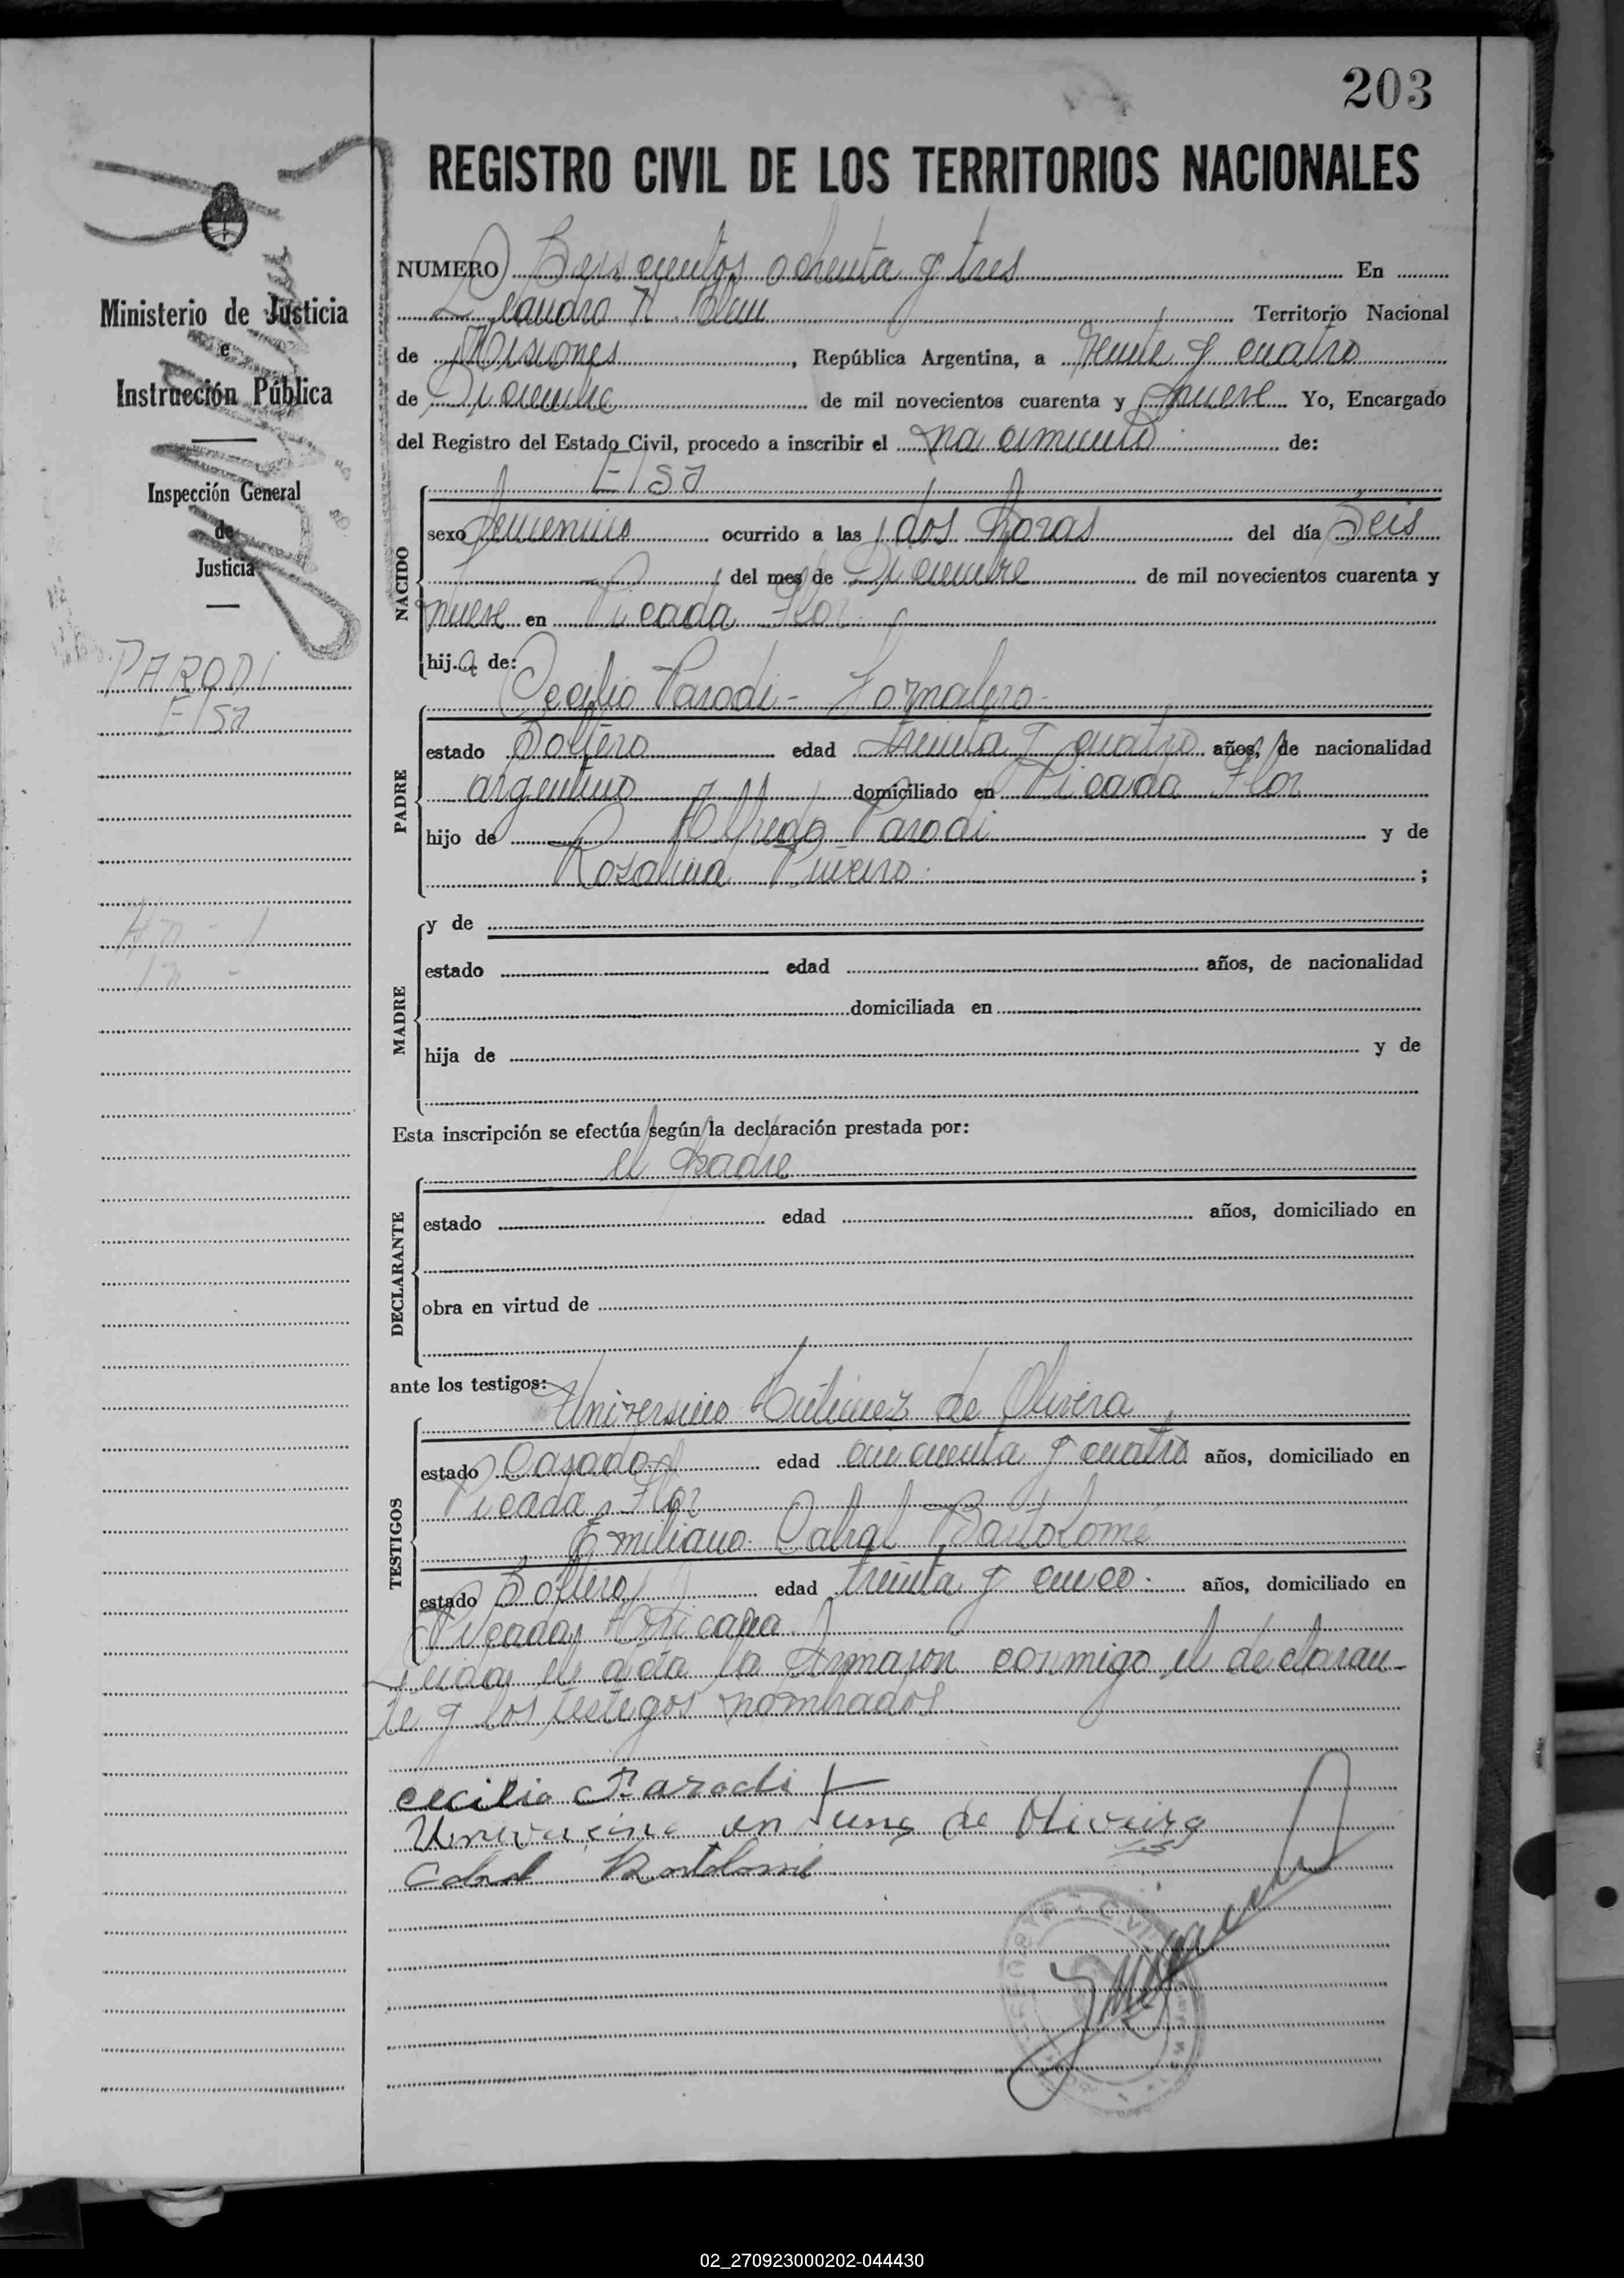 203
REGISTRO CIVIL DE LOS TERRITORIOS NACIONALES
Ministerio de Justicia
e
Instrucción Pública
Inspección General
de
Justicia
PARODI
Elsa
NUMERO Seiscientos ochenta y tres En
Leandro N. Alem Territorio Nacional
de Misiones, República Argentina, a veinte y cuatro
de Diciembre de mil novecientos cuarenta y nueve Yo, Encargado
del Registro del Estado Civil, procedo a inscribir el nacimiento de:
NACIDO
Elsa
sexo femenino ocurrido a las dos horas del día Seis
del mes de Diciembre de mil novecientos cuarenta y
nueve en Picada Flor
hija de:
PADRE
Cecilio Parodi - Jornalero -
estado Soltero edad treinta y cuatro años, de nacionalidad
argentino domiciliado en Picada Flor
hijo de Alfredo Parodi y de
Rosalina ;
MADRE
y de
estado edad años, de nacionalidad
domiciliada en
hija de y de
Esta inscripción se efectúa según la declaración prestada por:
el padre
DECLARANTE
estado edad años, domiciliado en
obra en virtud de
ante los testigos:
TESTIGOS
de Olivera
estado Casado edad cincuenta y cuatro años, domiciliado en
Picada Flor
Emiliano Cabral Bartolomé
estado Soltero edad treinta y cinco años, domiciliado en
Picada
Leida el acta la firmaron conmigo el declaran-
te y los testigos nombrados
cecilio Parodi
de Oliveira
Cabral Bartolomé
02_270923000202-044430